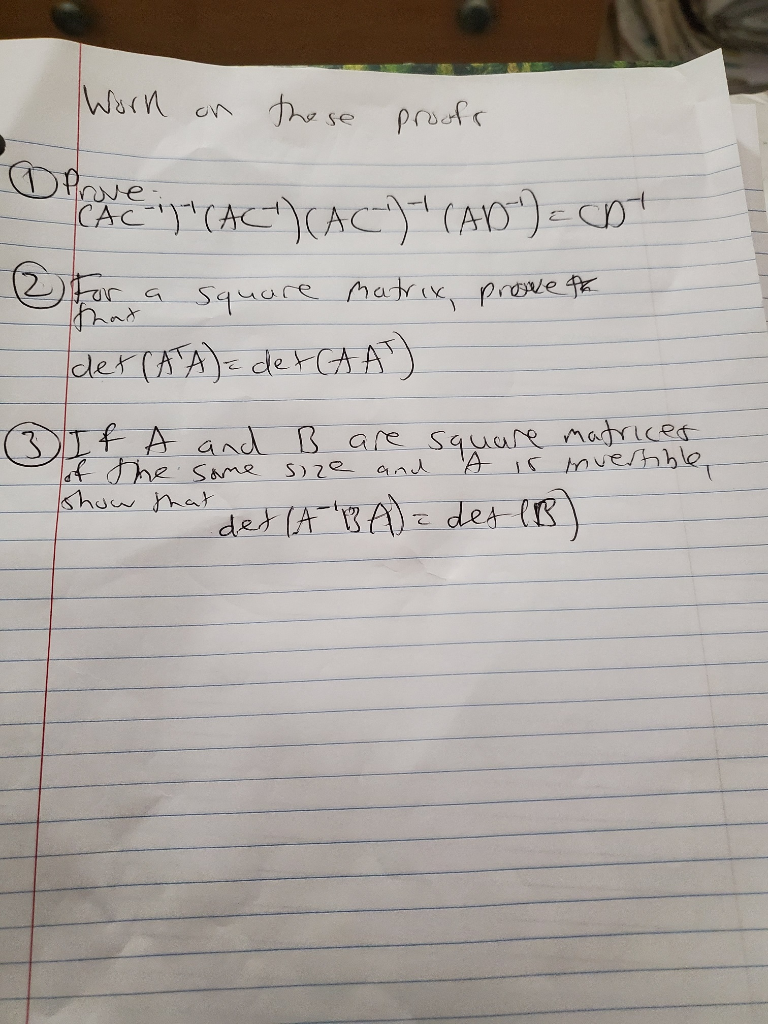 Work on these proofs
① Prove:
(AC⁻¹)⁻¹(AC⁻¹)(AC⁻¹)⁻¹(AD⁻¹) = CD⁻¹
② For a square matrix, prove
that
det(AᵀA) = det(AAᵀ)
③ If A and B are square matrices
of the same size and A is invertible,
show that
det(A⁻¹BA) = det(B)